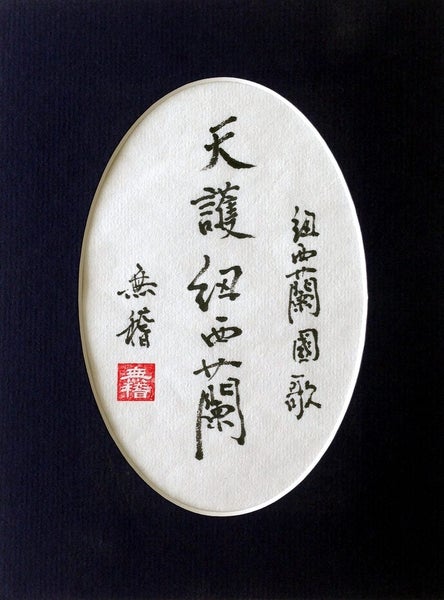 紐西蘭國歌
天護紐西蘭
無稽
無稽